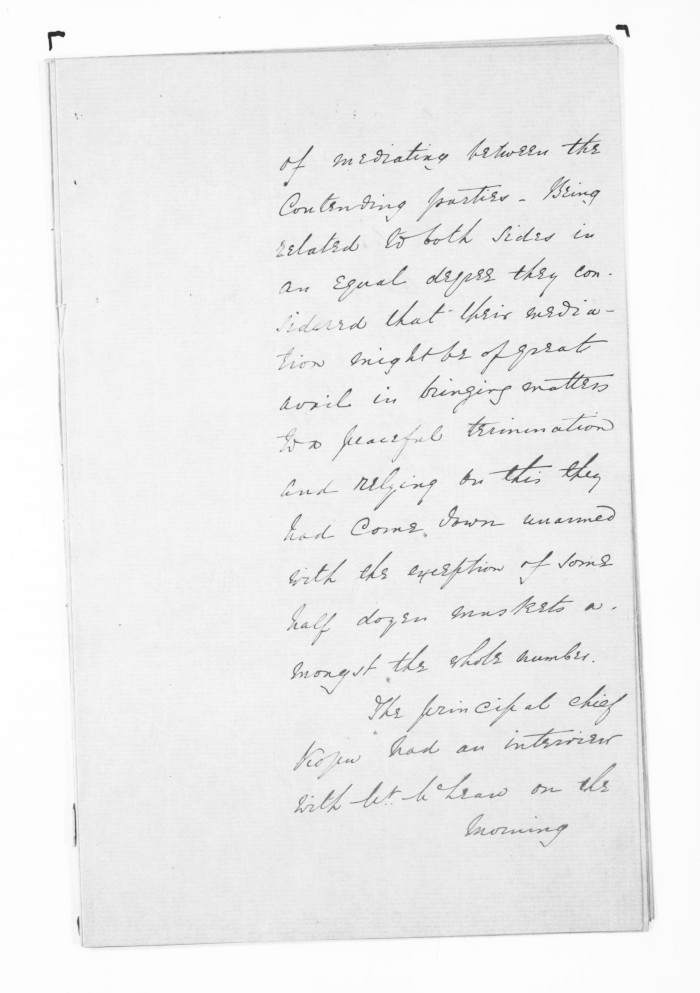 of mediating between the
Contending parties - Being
related to both sides in
an Equal degree they con-
sidered that their media-
tion might be of great
avail in bringing matters
to a peaceful termination
and relying on this they
had Come down unarmed
with the exception of some
half dozen muskets a-
mongst the whole number.
The principal chief
Kopu had an interview
with Mr. McLean on the
morning